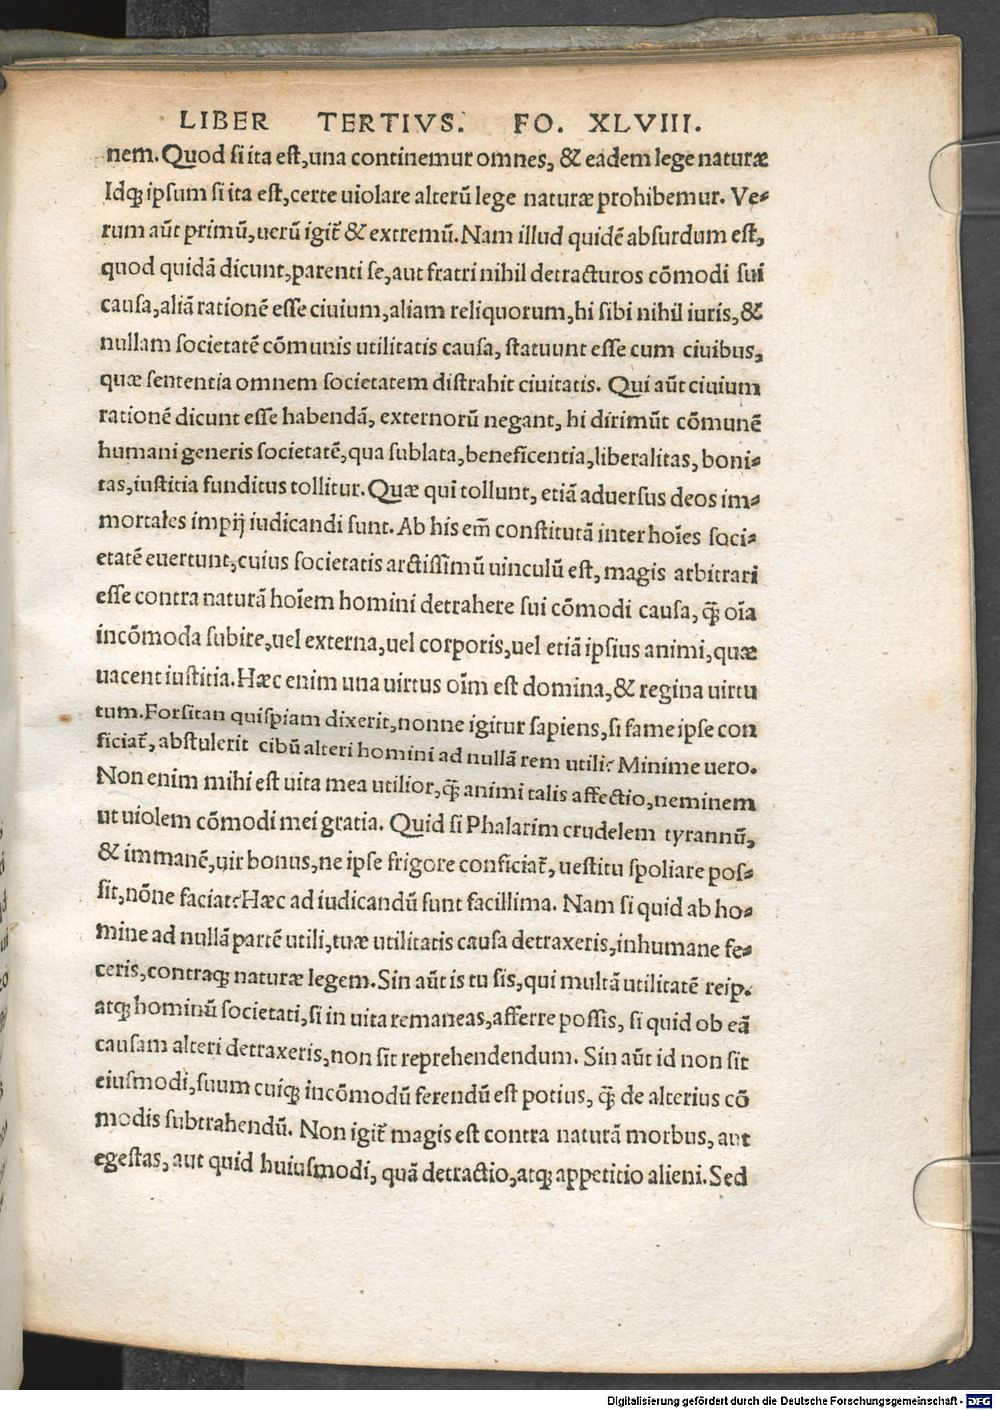 LIBER TERTIVS. FO. XLVIII.
nem. Quod si ita est, una continemur omnes, & eadem lege naturæ
Idq; ipsum si ita est, certe uiolare alterũ lege naturæ prohibemur. Ve-
rum aũt primũ, uerũ igit̃ & extremũ. Nam illud quidẽ absurdum est,
quod quidã dicunt, parenti se, aut fratri nihil detracturos cõmodi sui
causa, aliã rationẽ esse ciuium, aliam reliquorum, hi sibi nihil iuris, &
nullam societatẽ cõmunis utilitatis causa, statuunt esse cum ciuibus,
quæ sententia omnem societatem distrahit ciuitatis. Qui aũt ciuium
rationẽ dicunt esse habendã, externorũ negant, hi dirimũt cõmunẽ
humani generis societatẽ, qua sublata, beneficentia, liberalitas, boni-
tas, iustitia funditus tollitur. Quæ qui tollunt, etiã aduersus deos im-
mortales impij iudicandi sunt. Ab his em̃ constitutã inter hoĩes soci-
etatẽ euertunt, cuius societatis arctissimũ uinculũ est, magis arbitrari
esse contra naturã hoĩem homini detrahere sui cõmodi causa, q̃; oĩa
incõmoda subire, uel externa, uel corporis, uel etiã ipsius animi, quæ
uacent iustitia. Hæc enim una uirtus oĩm est domina, & regina uirtu
tum. Forsitan quispiam dixerit, nonne igitur sapiens, si fame ipse con
ficiat̃, abstulerit cibũ alteri homini ad nullã rem utili? Minime uero.
Non enim mihi est uita mea utilior, q̃; animi talis affectio, neminem
ut uiolem cõmodi mei gratia. Quid si Phalarim crudelem tyrannũ,
& immanẽ, uir bonus, ne ipse frigore conficiat̃, uestitu spoliare pos-
sit, nõne faciat? Hæc ad iudicandũ sunt facillima. Nam si quid ab ho-
mine ad nullã partẽ utili, tuæ utilitatis causa detraxeris, inhumane fe-
ceris, contraq; naturæ legem. Sin aũt is tu sis, qui multã utilitatẽ reip.
atq; hominũ societati, si in uita remaneas, afferre possis, si quid ob eã
causam alteri detraxeris, non sit reprehendendum. Sin aũt id non sit
eiusmodi, suum cuiq; incõmodũ ferendũ est potius, q̃; de alterius cõ
modis subtrahendũ. Non igit̃ magis est contra naturã morbus, aut
egestas, aut quid huiusmodi, quã detractio, atq; appetitio alieni. Sed
Digitalisierung gefördert durch die Deutsche Forschungsgemeinschaft - DFG